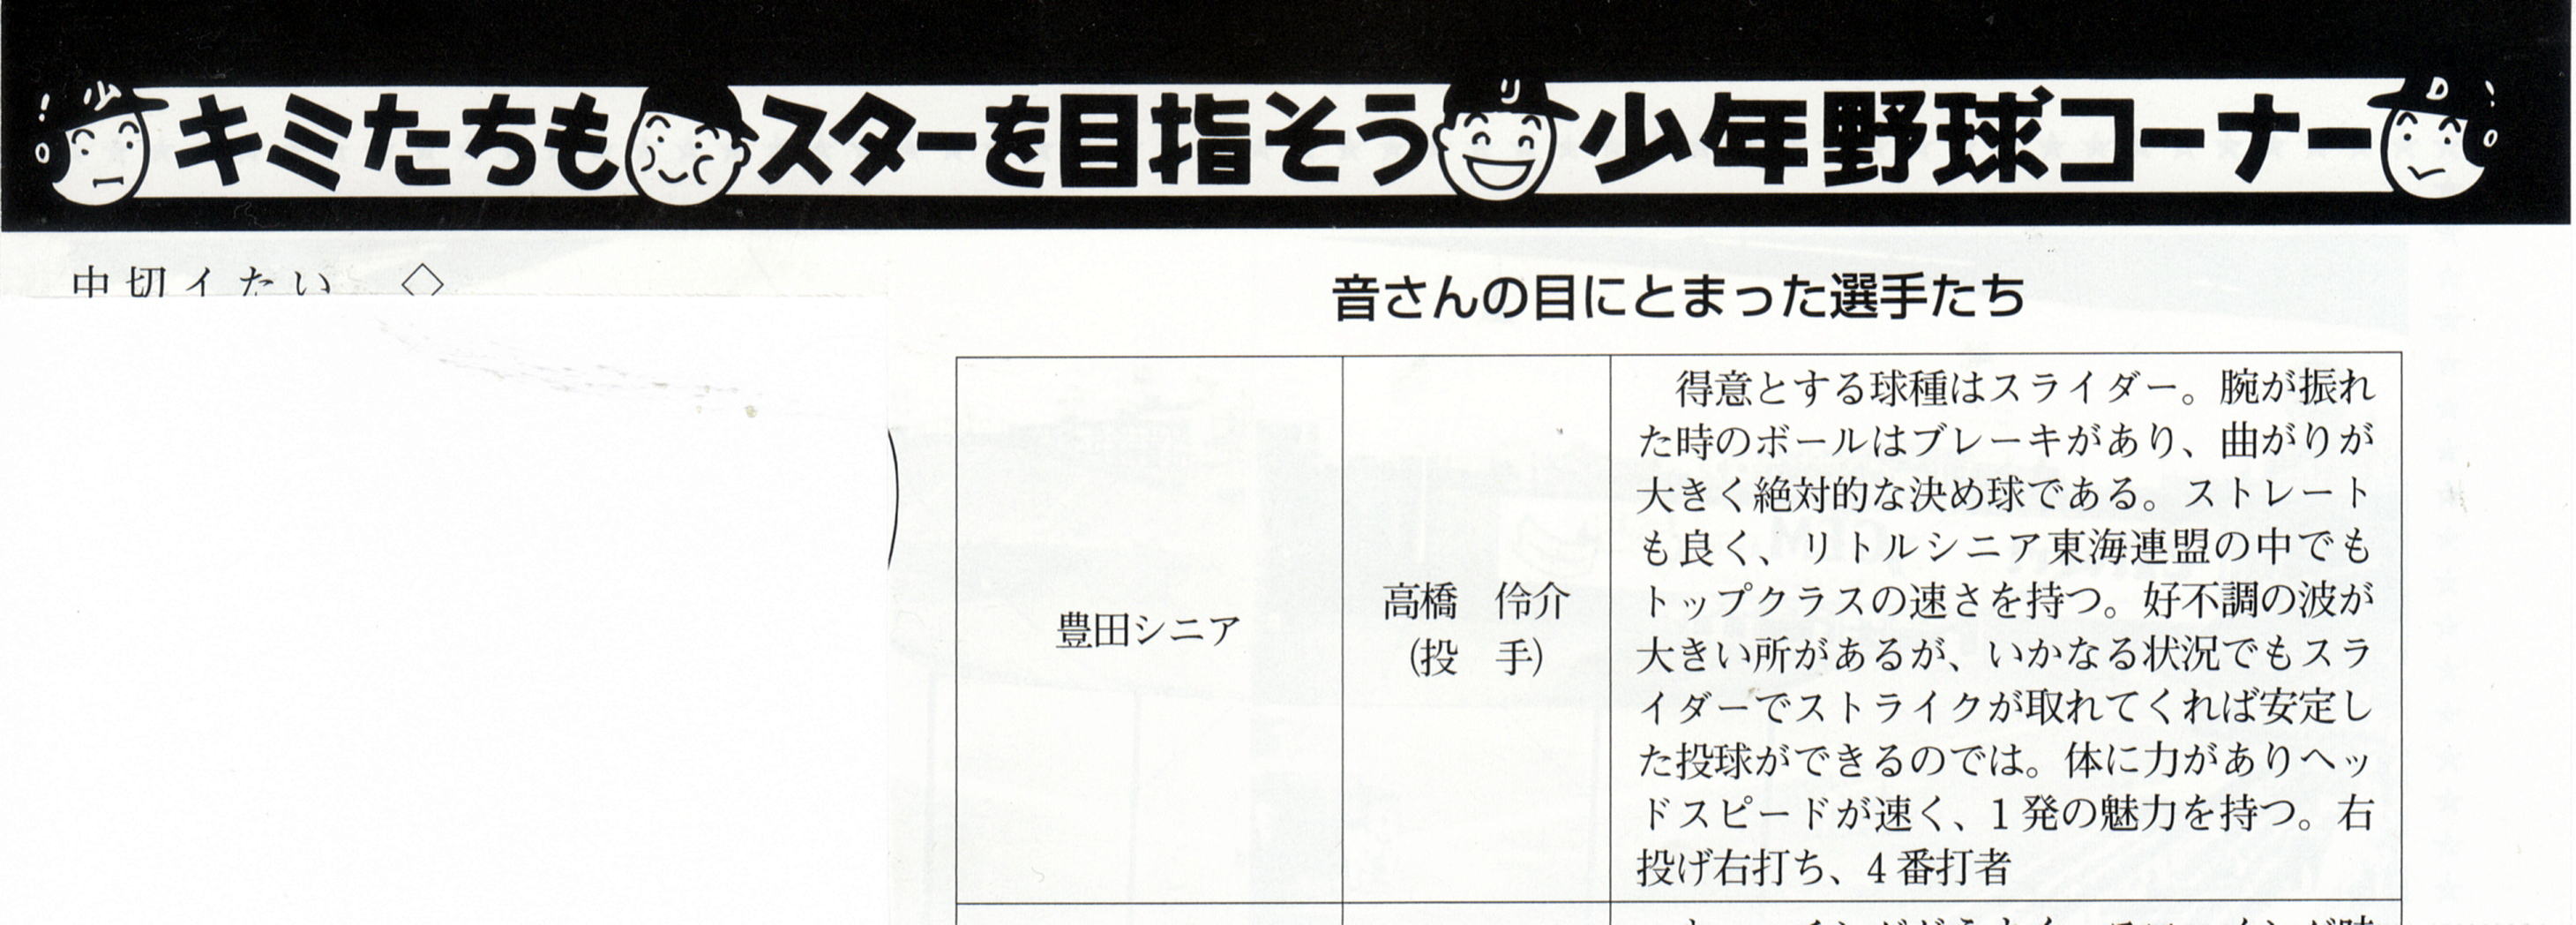 キミたちもスターを目指そう少年野球コーナー
音さんの目にとまった選手たち
豊田シニア
高橋　伶介
(投　手)
　得意とする球種はスライダー。腕が振れ
た時のボールはブレーキがあり、曲がりが
大きく絶対的な決め球である。ストレート
も良く、リトルシニア東海連盟の中でも
トップクラスの速さを持つ。好不調の波が
大きい所があるが、いかなる状況でもスラ
イダーでストライクが取れてくれば安定し
た投球ができるのでは。体に力がありヘッ
ドスピードが速く、1発の魅力を持つ。右
投げ右打ち、4番打者